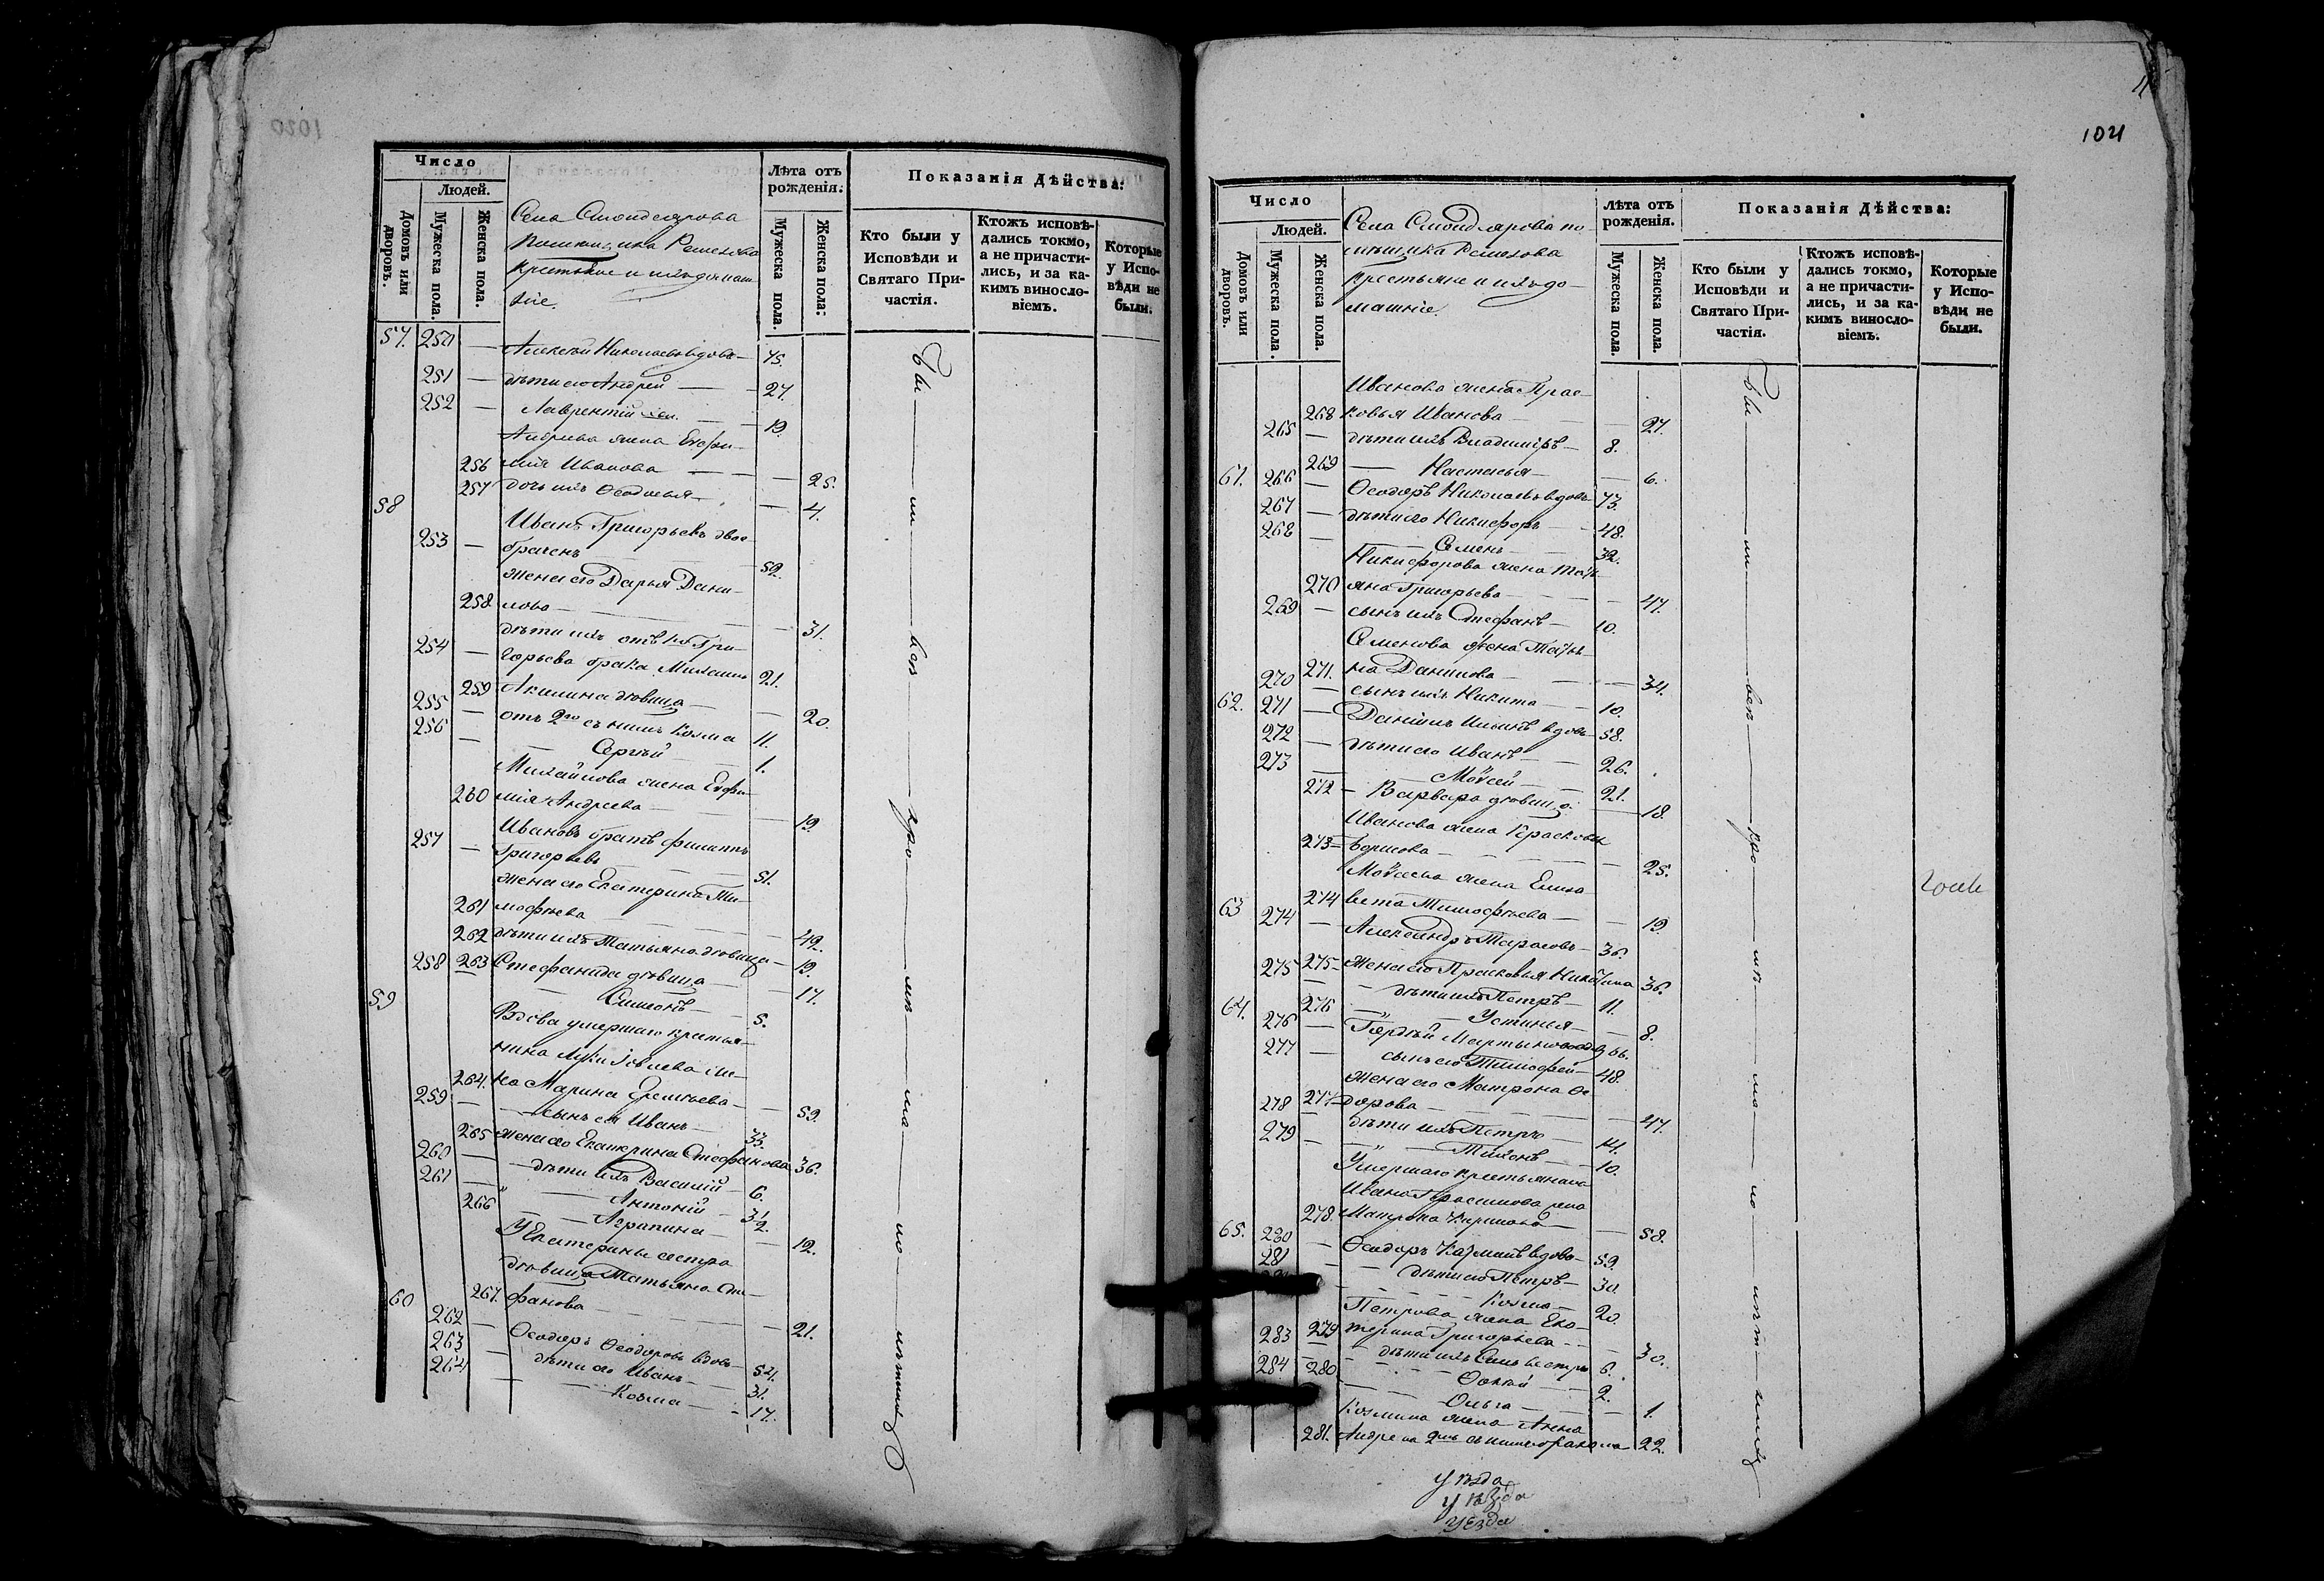 1020
Число
Людей.
Домовъ или дворовъ.
Мужеска пола.
Женска пола.
Села
помещика Ремезова
крестьяне и ихъ домаш-
ніе.
Лѣта отъ рожденія:
Мужеска пола.
Женска пола:
Показанія Дѣйства:
Кто были у Исповѣди и Святаго Причастія.
Ктожъ исповѣдались токмо, а не причастились, и за какимъ винословіемъ.
Которые у Исповѣди не были.
57. 250 — Алексѣй Николаевъ вдовъ — 75.
251 — дѣти его Андрей — 27.
252 — Лаврентій — 19.
Андреева жена Евфи-
256 мія Иванова — 25.
257 дочь ихъ Ѳеодосья — 4.
58 Иванъ Григорьевъ двое-
253 — браченъ — 52.
жена его Дарья Дани-
258 лова — 31.
дѣти ихъ отъ 1го Гри-
254 — горьева брака Михаилъ 21.
259 Акилина дѣвица — 20.
255 — отъ 2го съ нимъ Козма 11.
256 — Сергѣй — 1.
Михайлова жена Евфи-
260 мія Андреева — 19.
Ивановъ братъ Филиппъ
257 — Григорьевъ — 51.
жена его Екатерина Ти-
261 мофѣева — 49.
262 дѣти ихъ Татьяна дѣвица — 19.
263 Стефанида дѣвица — 17.
258 — Симеонъ — 5.
59 Вдова умершаго крестья-
нина Луки Іовлева
264. Марина Еремѣева — 59.
259 — сынъ ея Иванъ — 33.
265 жена его Екатерина Стефанова 36.
260 — дѣти ихъ Василій — 6.
261 — Антоній — 2.
266 — Аграпина — 12.
У Екатерины сестра
дѣвица Татьяна Сте-
267. фанова — 21.
60 262 — Ѳеодоръ Ѳеодоровъ вдовъ — 54.
263 — дѣти его Иванъ — 31.
264 — Козма — 17.
1021
Число
Людей.
Домовъ или дворовъ.
Мужеска пола.
Женска пола.
Села по-
мѣщика Ремезова
крестьяне и ихъ до-
машніе.
Лѣта отъ рожденія.
Мужеска пола.
Женска пола.
Показанія Дѣйства:
Кто были у Исповѣди и Святаго Причастія.
Ктожъ исповѣдались токмо, а не причастились, и за какимъ винословіемъ.
Которые у Исповѣди не были.
Иванова жена Прас-
268 ковья Иванова — 27.
265 — дѣти ихъ Владиміръ — 8.
269 — Настасья — 6.
61. 266 — Ѳеодоръ Николаевъ вдовъ 73.
267 — дѣти его Никифоръ — 48.
268 — Семенъ — 32.
Никифорова жена Тать-
270 яна Григорьева — 47.
269 — сынъ ихъ Стефанъ — 10.
Семенова жена Татья-
271. на Данилова — 34.
270 — сынъ ихъ Никита — 10.
62. 271 — Даніилъ Ильинъ вдовъ 58.
272 — дѣти его Иванъ — 26.
273 — Моѵсей — 21.
272 — Варвара дѣвица — 18.
Иванова жена Прасковья
273 Борисова — 25.
Моѵсеева жена Елиса-
274 вета Тимофѣева — 19.
63 274 — Александръ Тарасовъ — 36.
275 жена его Прасковья Никитина 36.
275 — дѣти ихъ Петръ — 11.
276 — Устинья — 8.
64. 276 — Гордѣй Мартыновъ 66.
277 — сынъ его Тимофей — 48.
жена его Матрона Ѳе-
277 дорова — 47.
278 — дѣти ихъ Петръ — 14.
279 — Тихонъ — 10.
Умершаго крестьянина
Ивана Герасимова жена
278. Матрона — 58.
65. 280 — Ѳеодоръ Козминъ вдовъ — 59.
281 — дѣти его Петръ — 30.
Козма — 20.
Петрова жена Ека-
279 терина Григорьева — 30.
283 — дѣти ихъ Сильвестръ 6.
284 — 2.
280 Ольга — 1.
Козмина жена Анна
281. 22.
уѣзда
уѣзда
уѣзда